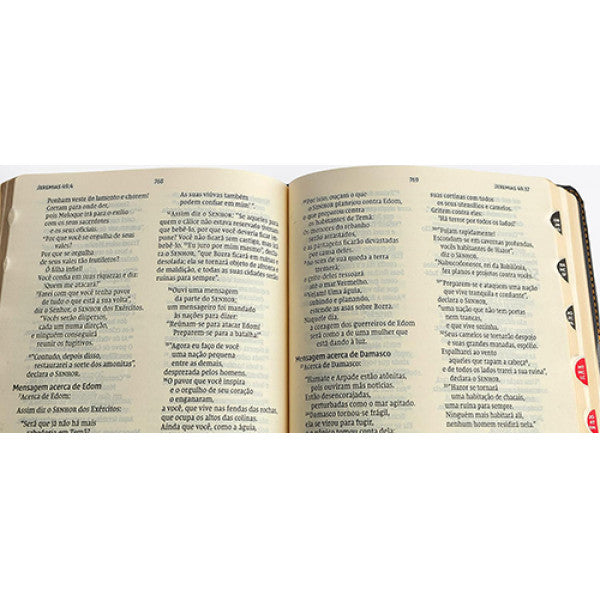 JEREMIAS 49:4
768
Ponham veste de lamento e chorem!
Corram para onde der,
pois Moloque irá para o exílio
com os seus sacerdotes
e os seus oficiais.
Por que você se orgulha de seus
vales?
Por que se orgulha
de seus vales tão frutíferos?
Ó filha infiel!
Você confia em suas riquezas e diz:
'Quem me atacará?'
"Farei com que você tenha pavor
de tudo o que está à sua volta",
diz o Senhor, o SENHOR dos Exércitos.
"Vocês serão dispersos,
cada um numa direção,
e ninguém conseguirá
reunir os fugitivos.
"Contudo, depois disso,
restaurarei a sorte dos amonitas",
declara o SENHOR.
Mensagem acerca de Edom
Acerca de Edom:
Assim diz o SENHOR dos Exércitos:
"Será que já não há mais
sabedoria em Temã?
As suas viúvas também
podem confiar em mim".
Assim diz o SENHOR: "Se aqueles para
quem o cálice não estava reservado tiveram
que bebê-lo, por que você deveria ficar im-
pune? Você não ficará sem castigo, mas irá
bebê-lo. "Eu juro por mim mesmo", decla-
ra o SENHOR, "que Bozra ficará em ruínas e
desolada; ela se tornará objeto de afronta e
de maldição, e todas as suas cidades serão
ruínas para sempre".
Ouvi uma mensagem
da parte do SENHOR;
um mensageiro foi mandado
às nações para dizer:
"Reúnam-se para atacar Edom!
Preparem-se para a batalha!"
"Agora eu faço de você
uma nação pequena
entre as demais,
desprezada pelos homens.
O pavor que você inspira
e o orgulho de seu coração
o enganaram,
a você, que vive nas fendas das rochas,
que ocupa os altos das colinas.
Ainda que você, como a águia,
769
JEREMIAS 49:32
Por isso, ouçam o que
o SENHOR planejou contra Edom,
o que preparou contra
os habitantes de Temã:
Os menores do rebanho
serão arrastados,
e as pastagens ficarão devastadas
por causa deles.
Ao som de sua queda a terra
tremerá;
até o mar Vermelho.
Vejam! Uma águia,
subindo e planando,
estende as asas sobre Bozra.
Naquele dia,
a coragem dos guerreiros de Edom
será como a de uma mulher que
está dando à luz.
Mensagem acerca de Damasco
Acerca de Damasco:
"Hamate e Arpade estão atônitas,
pois ouviram más notícias.
Estão desencorajadas,
perturbadas como o mar agitado.
Damasco tornou-se frágil,
ela se virou para fugir,
e o pânico tomou conta dela;
suas cortinas com todos
os seus utensílios e camelos.
Gritem contra eles:
'Há terror por todos os lados!'
"Fujam rapidamente!
Escondam-se em cavernas profundas,
vocês habitantes de Hazor",
diz o SENHOR.
"Nabucodonosor, rei da Babilônia,
fez planos e projetos contra vocês.
"Preparem-se e ataquem uma nação
que vive tranquila e confiante",
declara o SENHOR,
"uma nação que não tem portas
nem trancas,
e que vive sozinha.
"Seus camelos se tornarão despojo
e suas grandes manadas, espólio.
Espalharei ao vento
aqueles que rapam a cabeça,
e de todos os lados trarei a sua ruína",
declara o SENHOR.
"Hazor se tornará
uma habitação de chacais,
uma ruína para sempre.
Ninguém mais habitará ali,
nenhum homem residirá nela."